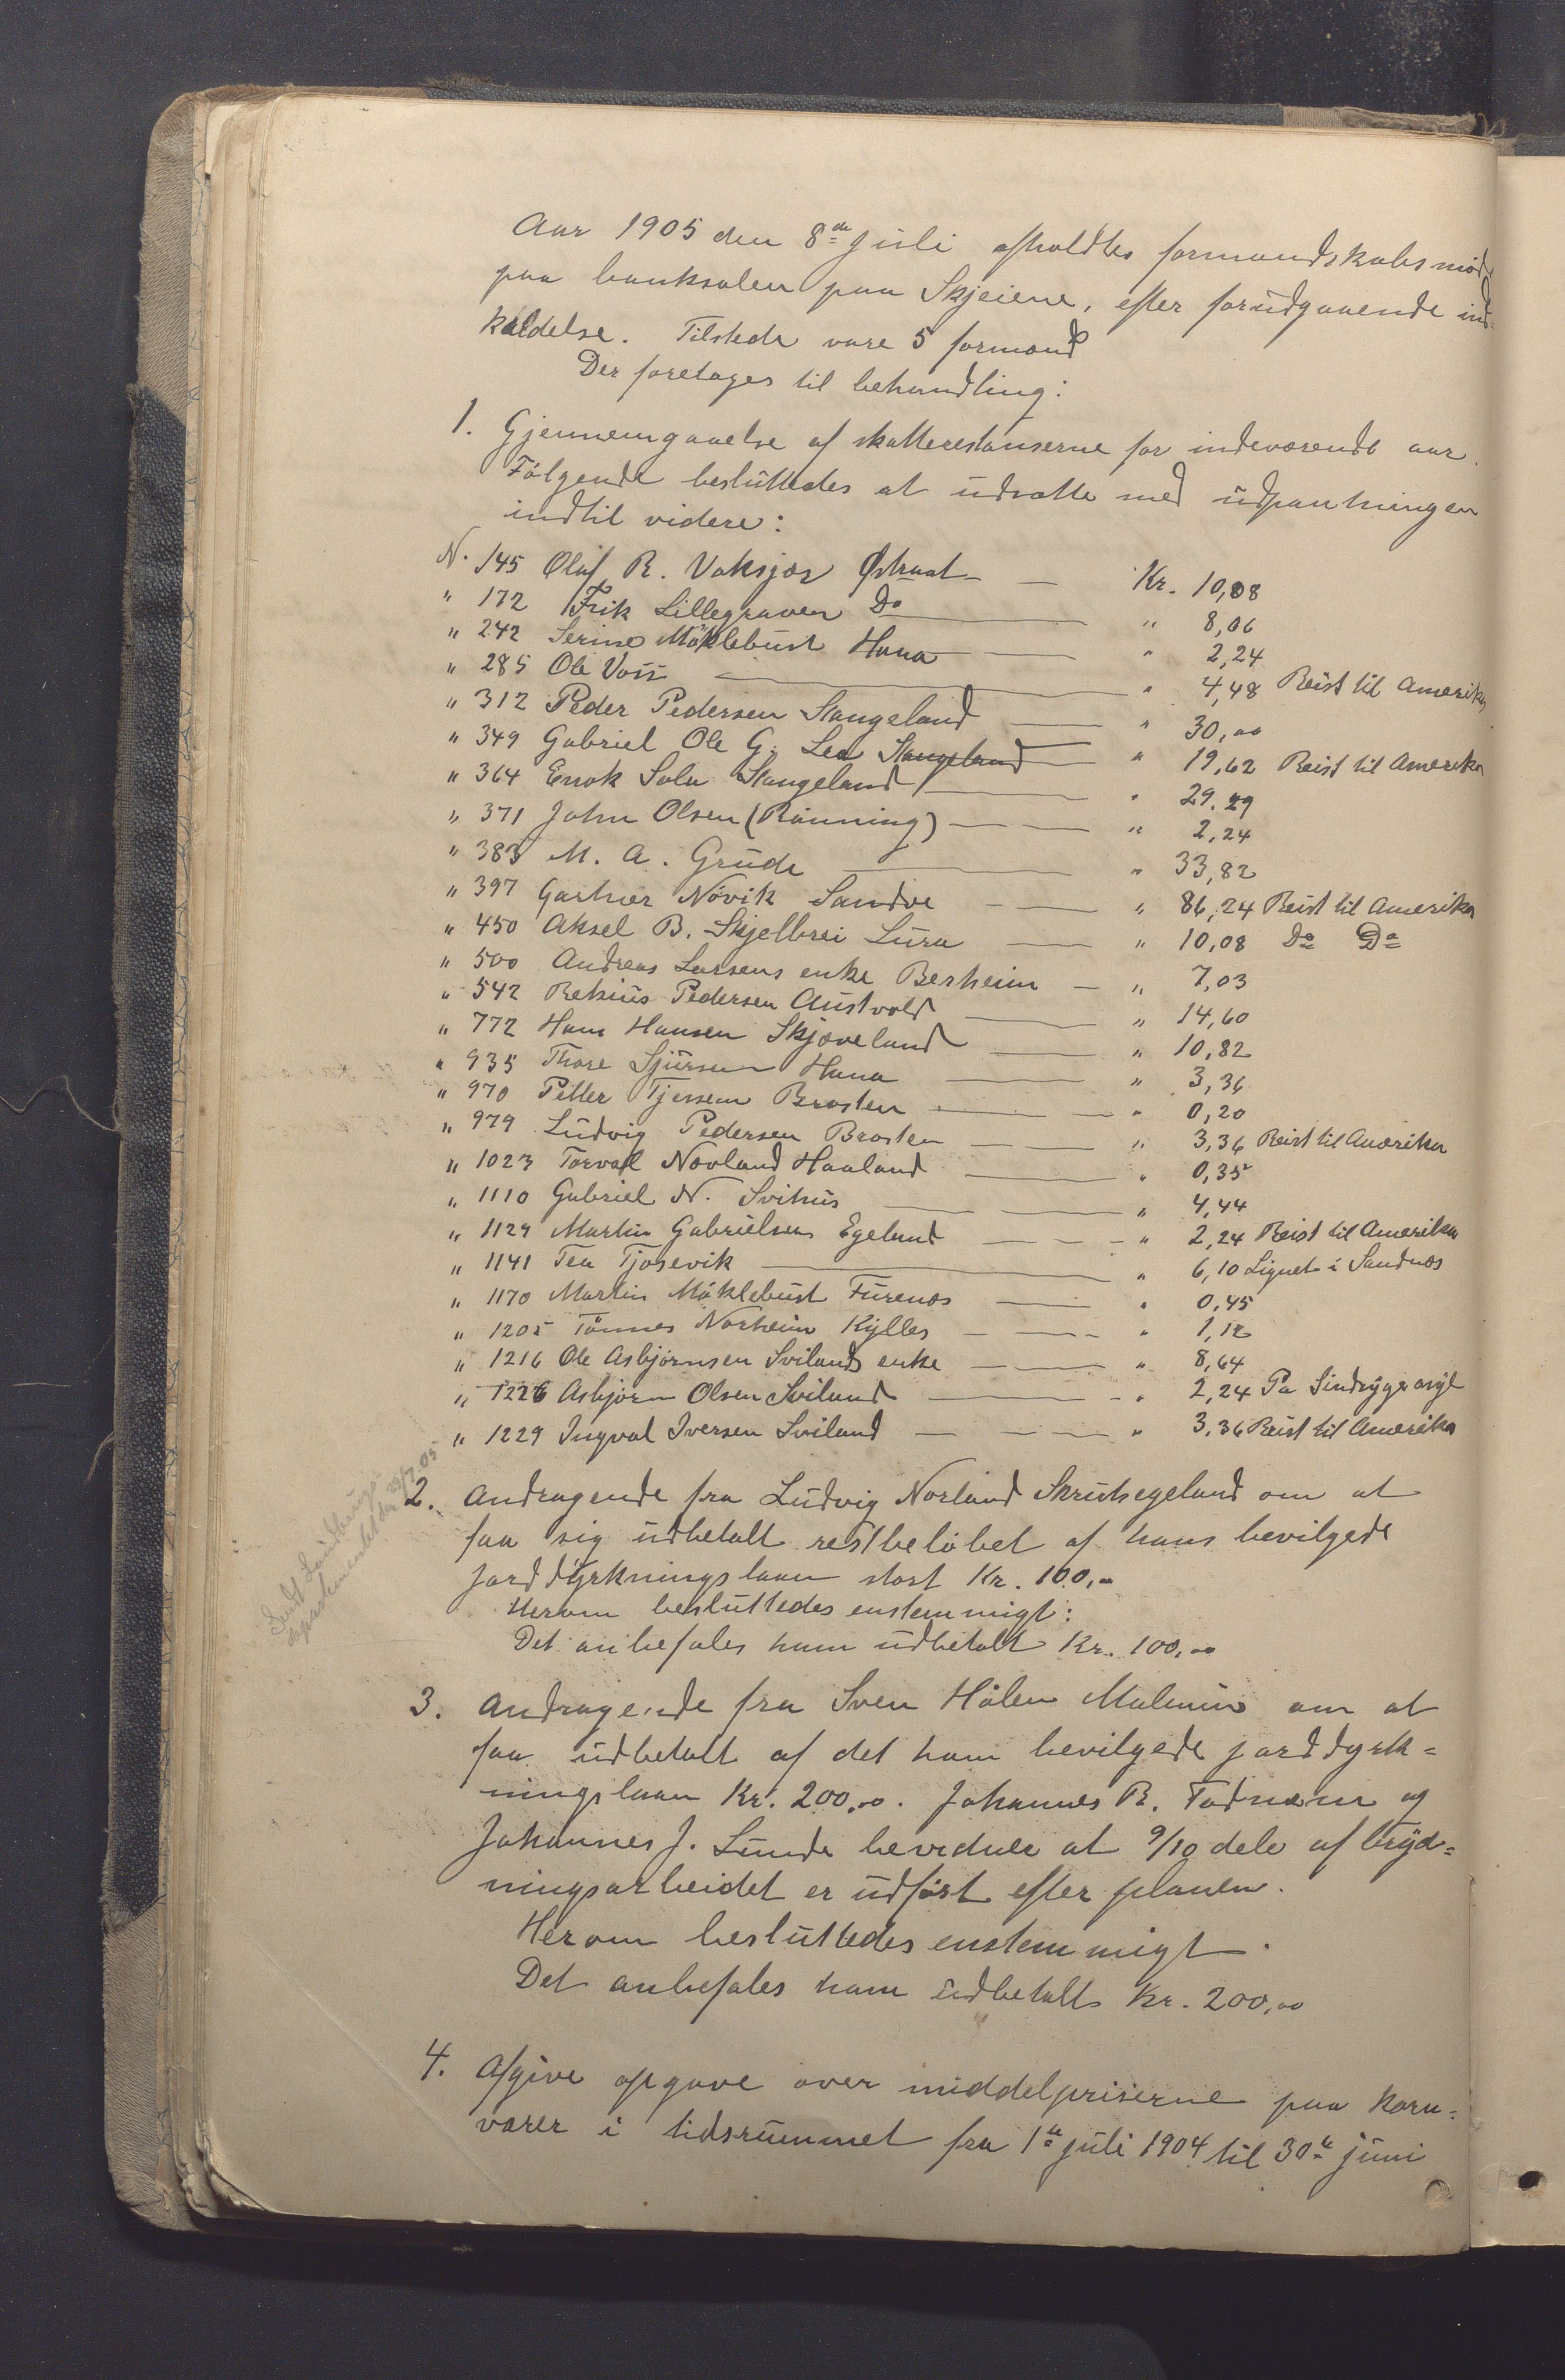 Aar 1905 den 8de juli afholdtes formandskabsmöde
paa banksalen paa Skjeiene, efter forudgaaende ind-
kaldelse. Tilstede vare 5 formænd
Der foretages til behandling:
1. Gjennemgaaelse af skatterestanserne for indeværende aar.
Fölgende besluttedes at udsætte med udpantningen
indtil videre:
N. 145 Oluf R. Vaksjær Østraat — — Kr. 10,08
" 172 Erik Lillegraven Do — " 8,06
" 242 Serine Möklebust Hana — — " 2,24
" 285 Ole Voss — " 4,48 Reist til Amerika
" 312 Peder Pedersen Stangeland — " 30,00
" 349 Gabriel Ole G. Lea Stangeland — " 19,62 Reist til Amerika
" 364 Enok Sola Stangeland — " 29,29
" 371 John Olsen (Rönning) — — " 2,24
" 383 M. A. Grude — " 33,82
" 397 Gartner Növik Sandve — — " 86,24 Reist til Amerika
" 450 Aksel B. Skjelbrei Lura — " 10,08 Do Do
" 500 Andreas Larsens enke Berheim — " 7,03
" 542 Pedersen Austvold — " 14,60
" 772 Hans Hansen Skjæveland — " 10,82
" 935 Thore Sjursen Hana — " 3,36
" 970 Petter Tjessem Brosten — — " 0,20
" 979 Ludvig Pedersen Brosten — — " 3,36 Reist til Amerika
" 1023 Torvald Novland Haaland — " 0,35
" 1110 Gabriel N. Svihus — — " 4,44
" 1129 Martin Gabrielsen Egeland — — - " 2,24 Reist til Amerika
" 1141 Tea Tjosevik — " 6,10 Lignet i Sandnæs
" 1170 Martin Möklebust Furenæs — " 0,45
" 1205 Tönnes Norheim Kylles — — - " 1,12
" 1216 Ole Asbjörnsen Svilands enke — — " 8,64
" 1226 Asbjörn Olsen Sviland — - " 2,24 Pa Sindsygeasyl
" 1229 Ingval Iversen Sviland — — — " 3,36 Reist til Amerika
2. Andragende fra Ludvig Norland Skrudsegeland om at
faa sig udbetalt restbelöbet af hans bevilgede
jorddÿrkningslaan stort Kr. 100,-
Herom besluttedes enstemmigt:
Det anbefales ham udbetalt Kr. 100,00
3. Andragende fra Sven Hölen Malmin om at
faa udbetalt af det ham bevilgede jorddyrk=
ningslaan Kr. 200,00. Johannes R. Fodnæm og
Johannes J. Lunde bevidner at 9/10 dele af bryd=
ningsarbeidet er udfört efter planen.
Herom besluttedes enstemmigt.
Det anbefales ham udbetalt Kr. 200,00
4. Afgive opgave over middelpriserne paa korn=
varer i tidsrummet fra 1te juli 1904 til 30te juni
Sendt Landbrugs-
departementet den 22/7 05